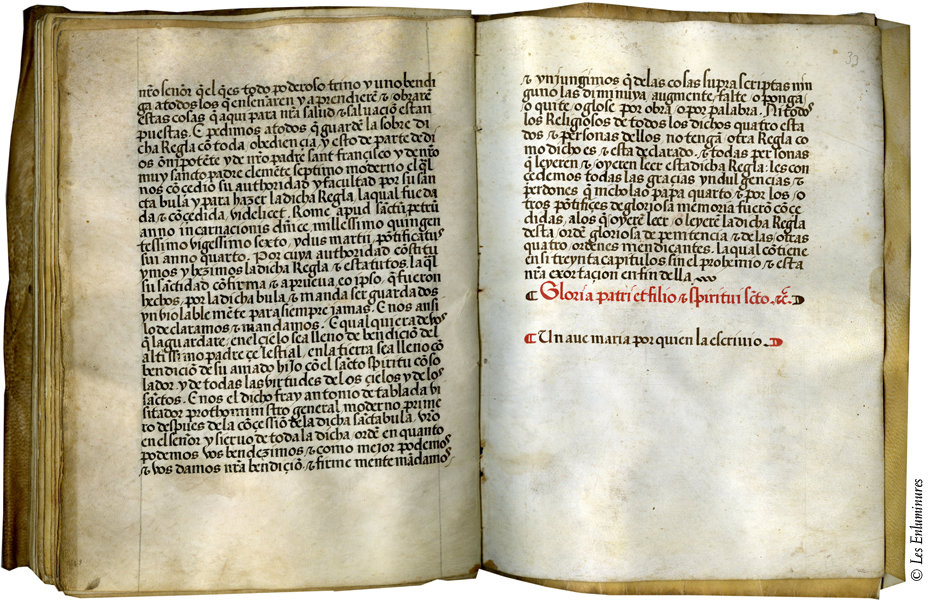 nr̃o señor q̃ el q̃es todo poderoso trino y uno bendi
ga a todos los q̃ enseñaren y aprendierẽ ⁊ obrarẽ
estas cosas q̃ aqui para nr̃a salud ⁊ saluaciõ estan
puestas. E pedimos a todos q̃ guardẽ la sobre di
cha Regla cõ toda obediencia, y esto de parte de di
os õnipotẽte y de nr̃o padre sant francisco y de nr̃o
muy sancto padre clemẽte septimo moderno el q̃l
nos cõcedio su authoridad y facultad por su san
cta bula y para hazer la dicha Regla, la qual fue da
da ⁊ cõcedida, videlicet, Rome, apud sanctũ petrũ
anno incarnacionis dñice, millessimo quingen
tessimo vigessimo sexto, ydus martii, põtificatus
sui anno quarto. Por cuya authoridad cõstitu
ymos y hezimos la dicha Regla ⁊ estatutos, la q̃l
su sactidad cõfirma ⁊ aprueua, eo ipso, q̃ fueron
hechos, por la dicha bula ⁊ manda ser guardados
ynviolablemẽte para siempre jamas. E nos ansi
lo declaramos ⁊ mandamos. E qualquiera de vos
q̃ la guardare, en el cielo sea lleno de bendiciõ del
altissimo padre çelestial, en la tierra sea lleno cõ
bendiciõ de su amado hijo cõ el sãcto spiritu cõso
lador, y de todas las virtudes de los çielos y de los
sãctos. E nos el dicho fray antonio de tablada vi
sitador prothoministro general moderno prime
ro despues de la cõcessiõ de la dicha sãcta bula, vr̃o
en el señor y sieruo de toda la dicha ordẽ en quanto
podemos vos bendezimos ⁊ como mejor podemos
⁊ vos damos nr̃a bendiciõ, ⁊ firmemente mãdamos
33
⁊ ynjungimos q̃ de las cosas supra scriptas nin
guno las diminuya, augmente, falte, o ponga
o quite, o glose por obra o por palabra. Ni todos
los Religiosos de todos los dichos quatro esta
dos ⁊ personas dellos no tengã otra Regla co
mo dicho es ⁊ esta declarado. ⁊ todas personas
q̃ leyeren ⁊ oyeren leer esta dicha Regla: les con
cedemos todas las gracias yndulgencias ⁊
perdones q̃ nicholao papa quarto ⁊ por los o
tros põtifices de gloriosa memoria fuerõ cõce
didas, a los q̃ oyerẽ leer o leyerẽ la dicha Regla
desta ordẽ gloriosa de penitencia ⁊ de las otras
quatro ordenes mendicantes. la qual cõtiene
en si treynta capitulos sin el prohemio ⁊ esta
nr̃a exortaçion en fin della
Gloria patri et filio ⁊ spiritui sc̃to. ⁊c̃.
Un aue maria por quien la escriuio.
© Les Enluminures